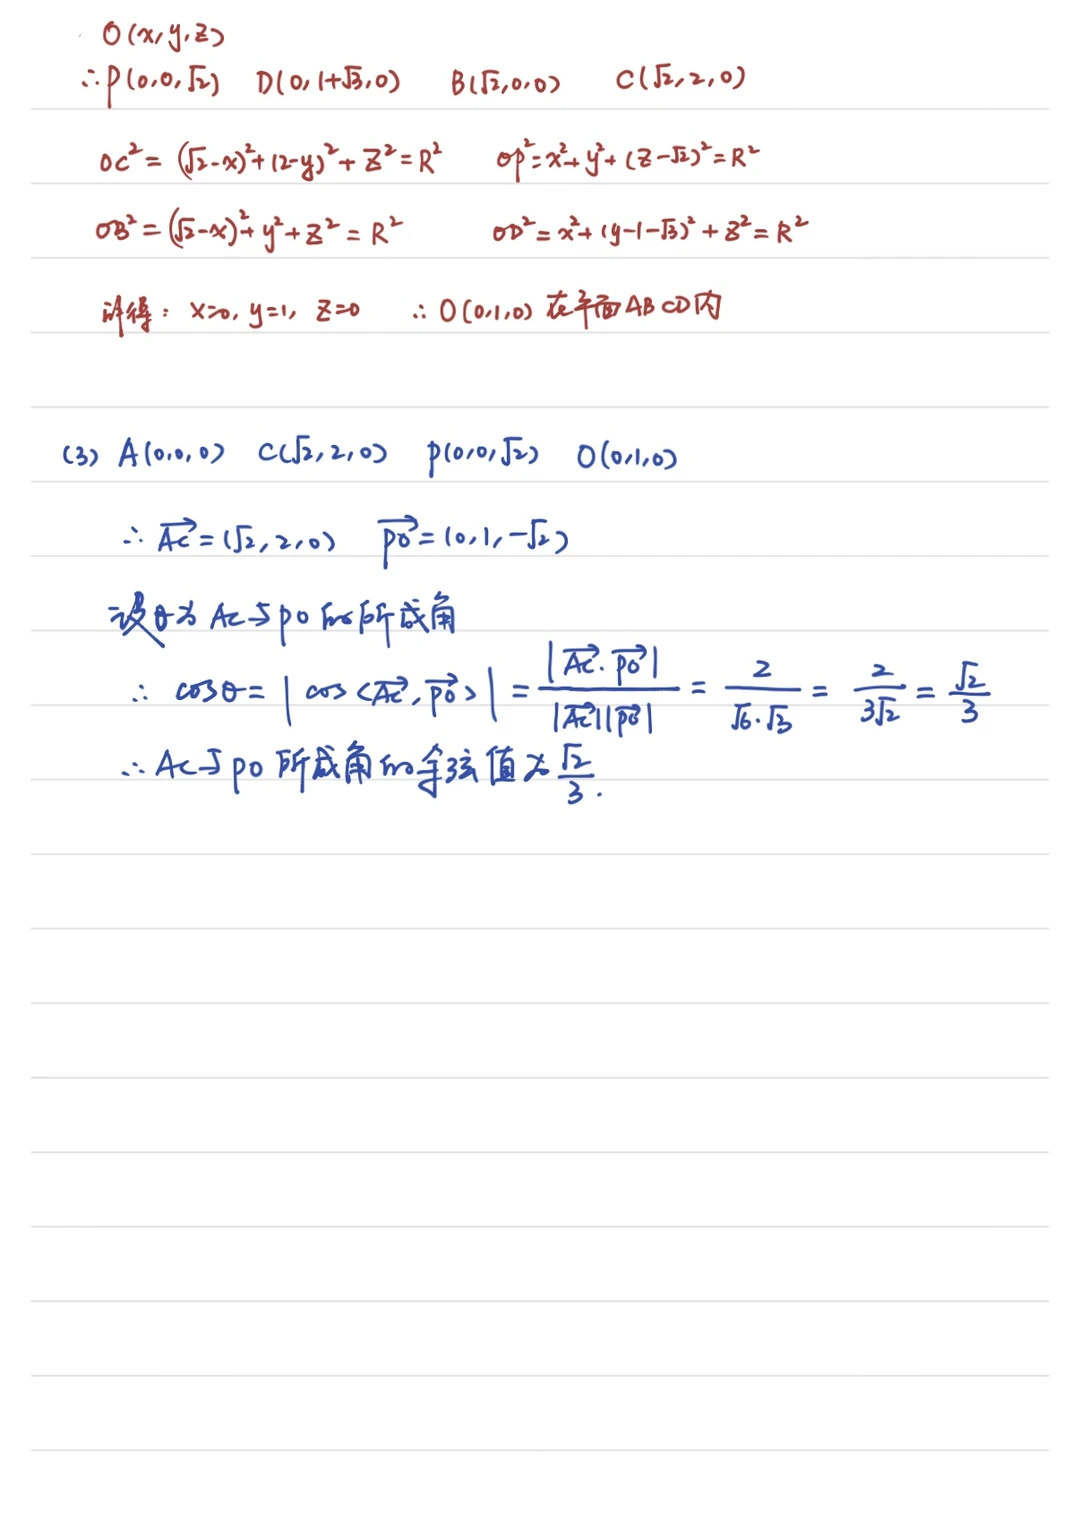 O(x,y,z)
∴P(0,0,√2) D(0,1+√3,0) B(√2,0,0) C(√2,2,0)
OC²=(√2-x)²+(2-y)²+z²=R² OP²=x²+y²+(z-√2)²=R²
OB²=(√2-x)²+y²+z²=R² OD²=x²+(y-1-√3)²+z²=R²
解得：x=0, y=1, z=0 ∴O(0,1,0)在平面ABCD内
(3) A(0,0,0) C(√2,2,0) P(0,0,√2) O(0,1,0)
∴AC→=(√2,2,0) PO→=(0,1,-√2)
设θ为AC与PO的所成角
∴ cosθ=|cos<AC→,PO→>|=|AC→·PO→|/|AC→||PO→|=2/√6·√3=2/3√2=√2/3
∴AC与PO所成角的余弦值为√2/3.